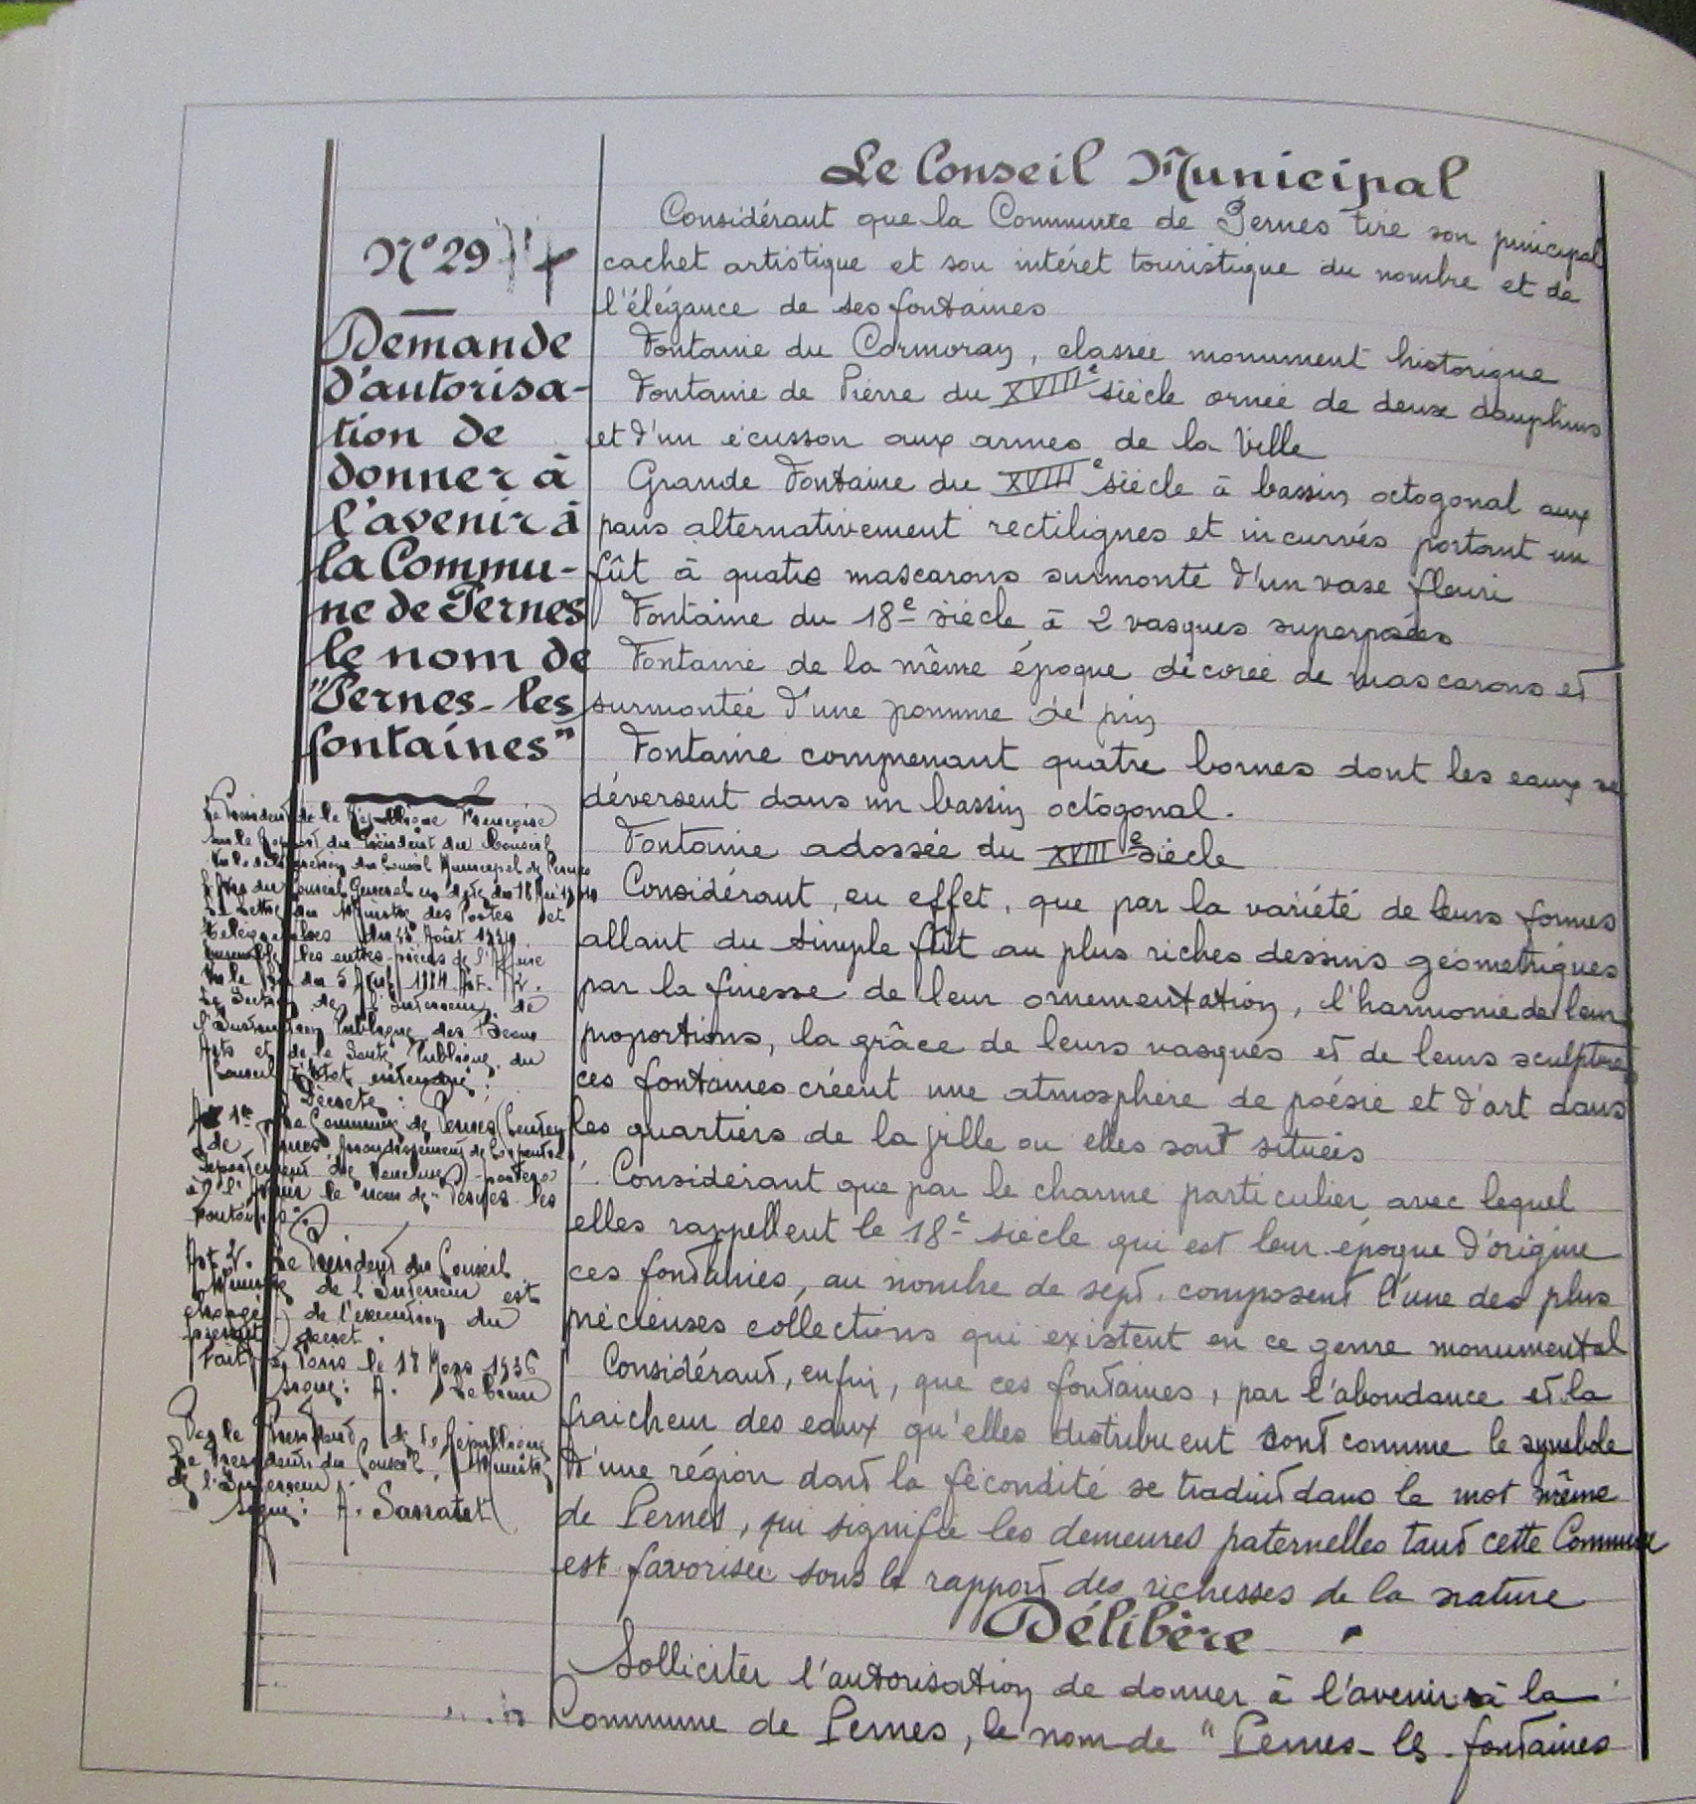 Le Conseil Municipal
Considérant que la Commune de Pernes tire son principal
cachet artistique et son intéret touristique du nombre et de
l'élégance de ses fontaines
Fontaine du Cormoran, classée monument historique
Fontaine de Pierre du XVIIIe siècle ornée de deux dauphins
et d'un écusson aux armes de la Ville
Grande Fontaine du XVIIIe siècle à bassin octogonal aux
pans alternativement rectilignes et incurvés portant un
fût à quatre mascarons surmonté d'un vase fleuri
Fontaine du 18e siècle à 2 vasques superposées
Fontaine de la même époque décorée de mascarons et
surmontée d'une pomme de pin
Fontaine comprenant quatre bornes dont les eaux se
déversent dans un bassin octogonal.
Fontaine adossée du XVIIIe siècle
Considérant, en effet, que par la variété de leurs formes
allant du simple fût au plus riches dessins géométriques
par la finesse de leur ornementation, l'harmonie de leurs
proportions, la grâce de leurs vasques et de leurs sculptures
ces fontaines créent une atmosphère de poésie et d'art dans
les quartiers de la ville ou elles sont situées
Considérant que par le charme particulier avec lequel
elles rappellent le 18e siècle qui est leur époque d'origine
ces fontaines, au nombre de sept, composent l'une des plus
précieuses collections qui existent en ce genre monumental
Considérant, enfin, que ces fontaines, par l'abondance et la
fraicheur des eaux qu'elles distribuent sont comme le symbole
d'une région dont la fécondité se traduit dans le mot même
de Pernes, qui signifie les demeures paternelles tant cette Commune
est favorisée sous le rapport des richesses de la nature
Délibère
Solliciter l'autorisation de donner à l'avenir à la
Commune de Pernes, le nom de "Pernes-les-fontaines
N° 29
Demande
d'autorisa-
tion de
donner à
l'avenir à
la Commu-
ne de Pernes
le nom de
"Pernes-les
fontaines"
Le Président de la République Française
sur le Rapport du Président du Conseil
Vu la délibération du Conseil Municipal de Pernes
L'Avis du Conseil Général en date du 18 Mai
La lettre du Ministre des Postes et
Télégraphes du Août
ensemble les autres pièces de l'Affaire
Vu la loi du 5 Avril 1884 Art. 2.
La Section de l'Intérieur, de
l'Instruction Publique, des Beaux
Arts et de la Santé Publique du
Conseil d'Etat entendue:
Décrète:
Art 1er La Commune de Pernes (Canton
de Pernes, Arrondissement de Carpentras
Département de Vaucluse) portera
à l'Avenir le nom de "Pernes les
Fontaines"
Art. 2. Le Président du Conseil
Ministre de l'Intérieur est
chargé de l'exécution du
présent décret.
Fait à Paris le Mars 1936
Signé: A. Lebrun
Par le Président de la République
Le Président du Conseil, Ministre
de l'Intérieur
Signé: A. Sarraut